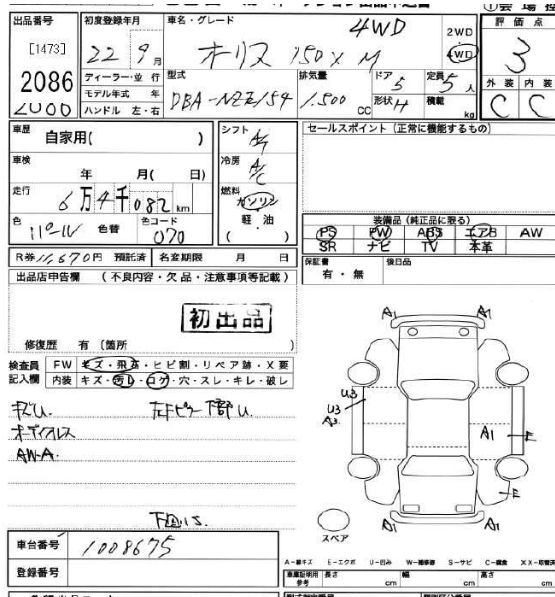 出品番号
[1473]
2086
初度登録年月
22 年 9 月
ディーラー・並 行
モデル年式 年
ハンドル 左・右
車名・グレード
4WD
オーリス 150X M
2WD
4WD
型式
DBA-NZE154
排気量
1,500 CC
ドア 5
形状 H
定員 5 人
積載 kg
評 価 点
3
外 装 内 装
C C
車歴
自家用( )
車検
年 月( 日)
走行
6万4千082 km
色
パール 色替
色コード
070
シフト
A/T
冷房
A/C
燃料
ガソリン
軽・油
( )
セールスポイント(正常に機能するもの)
装備品(純正品に限る)
PS PW ABS エアB AW
SR ナビ TV 本革
R券 11,670円 預託済 名変期限 月 日
保証書
有・無
後日品
出品店申告欄 (不良内容・欠品・注意事項等記載)
初出品
修復歴 有 〔箇所 〕
検査員
記入欄
FW キズ・飛石・ヒビ割・リペア跡・X要
内装 キズ・汚レ・コゲ・穴・スレ・キレ・破レ
キズU.
左Fピラー下部U.
オーディオレス
AW-A.
下回りS.
A1 A1
U3
U3
A2
A1 E
E
A1 A1
スペア
車台番号 1008675
登録番号
A－線キズ E－エクボ U－凹み W－補修跡 S－サビ C－腐食 XX－取替済
車庫証明用
参考
長さ cm 幅 cm 高さ cm